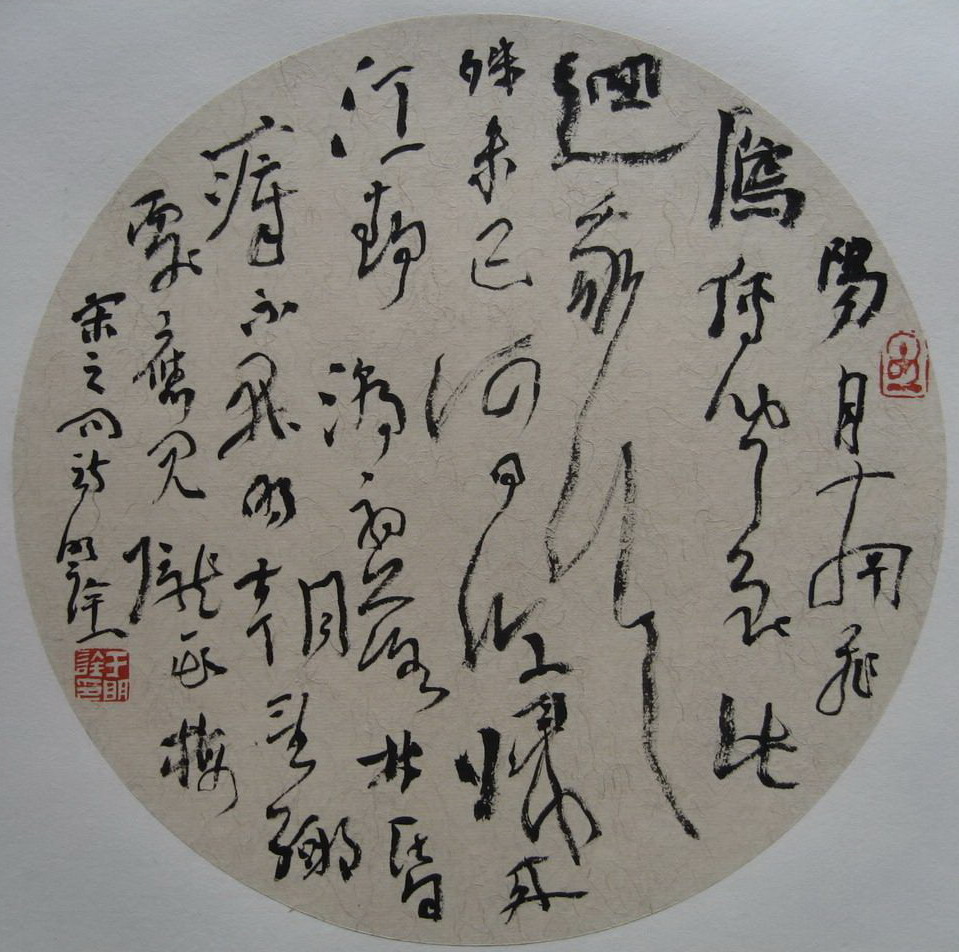 陽月南飛
鴈傳聞至此
迴我行
殊未已何日復歸来
江静潮初落林昏
瘴不開明朝望鄉
處應見隴頭梅
宋之問詩明詮
于明詮印